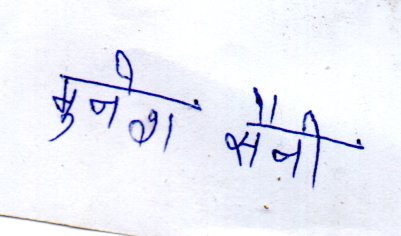 मुनेश सैनी